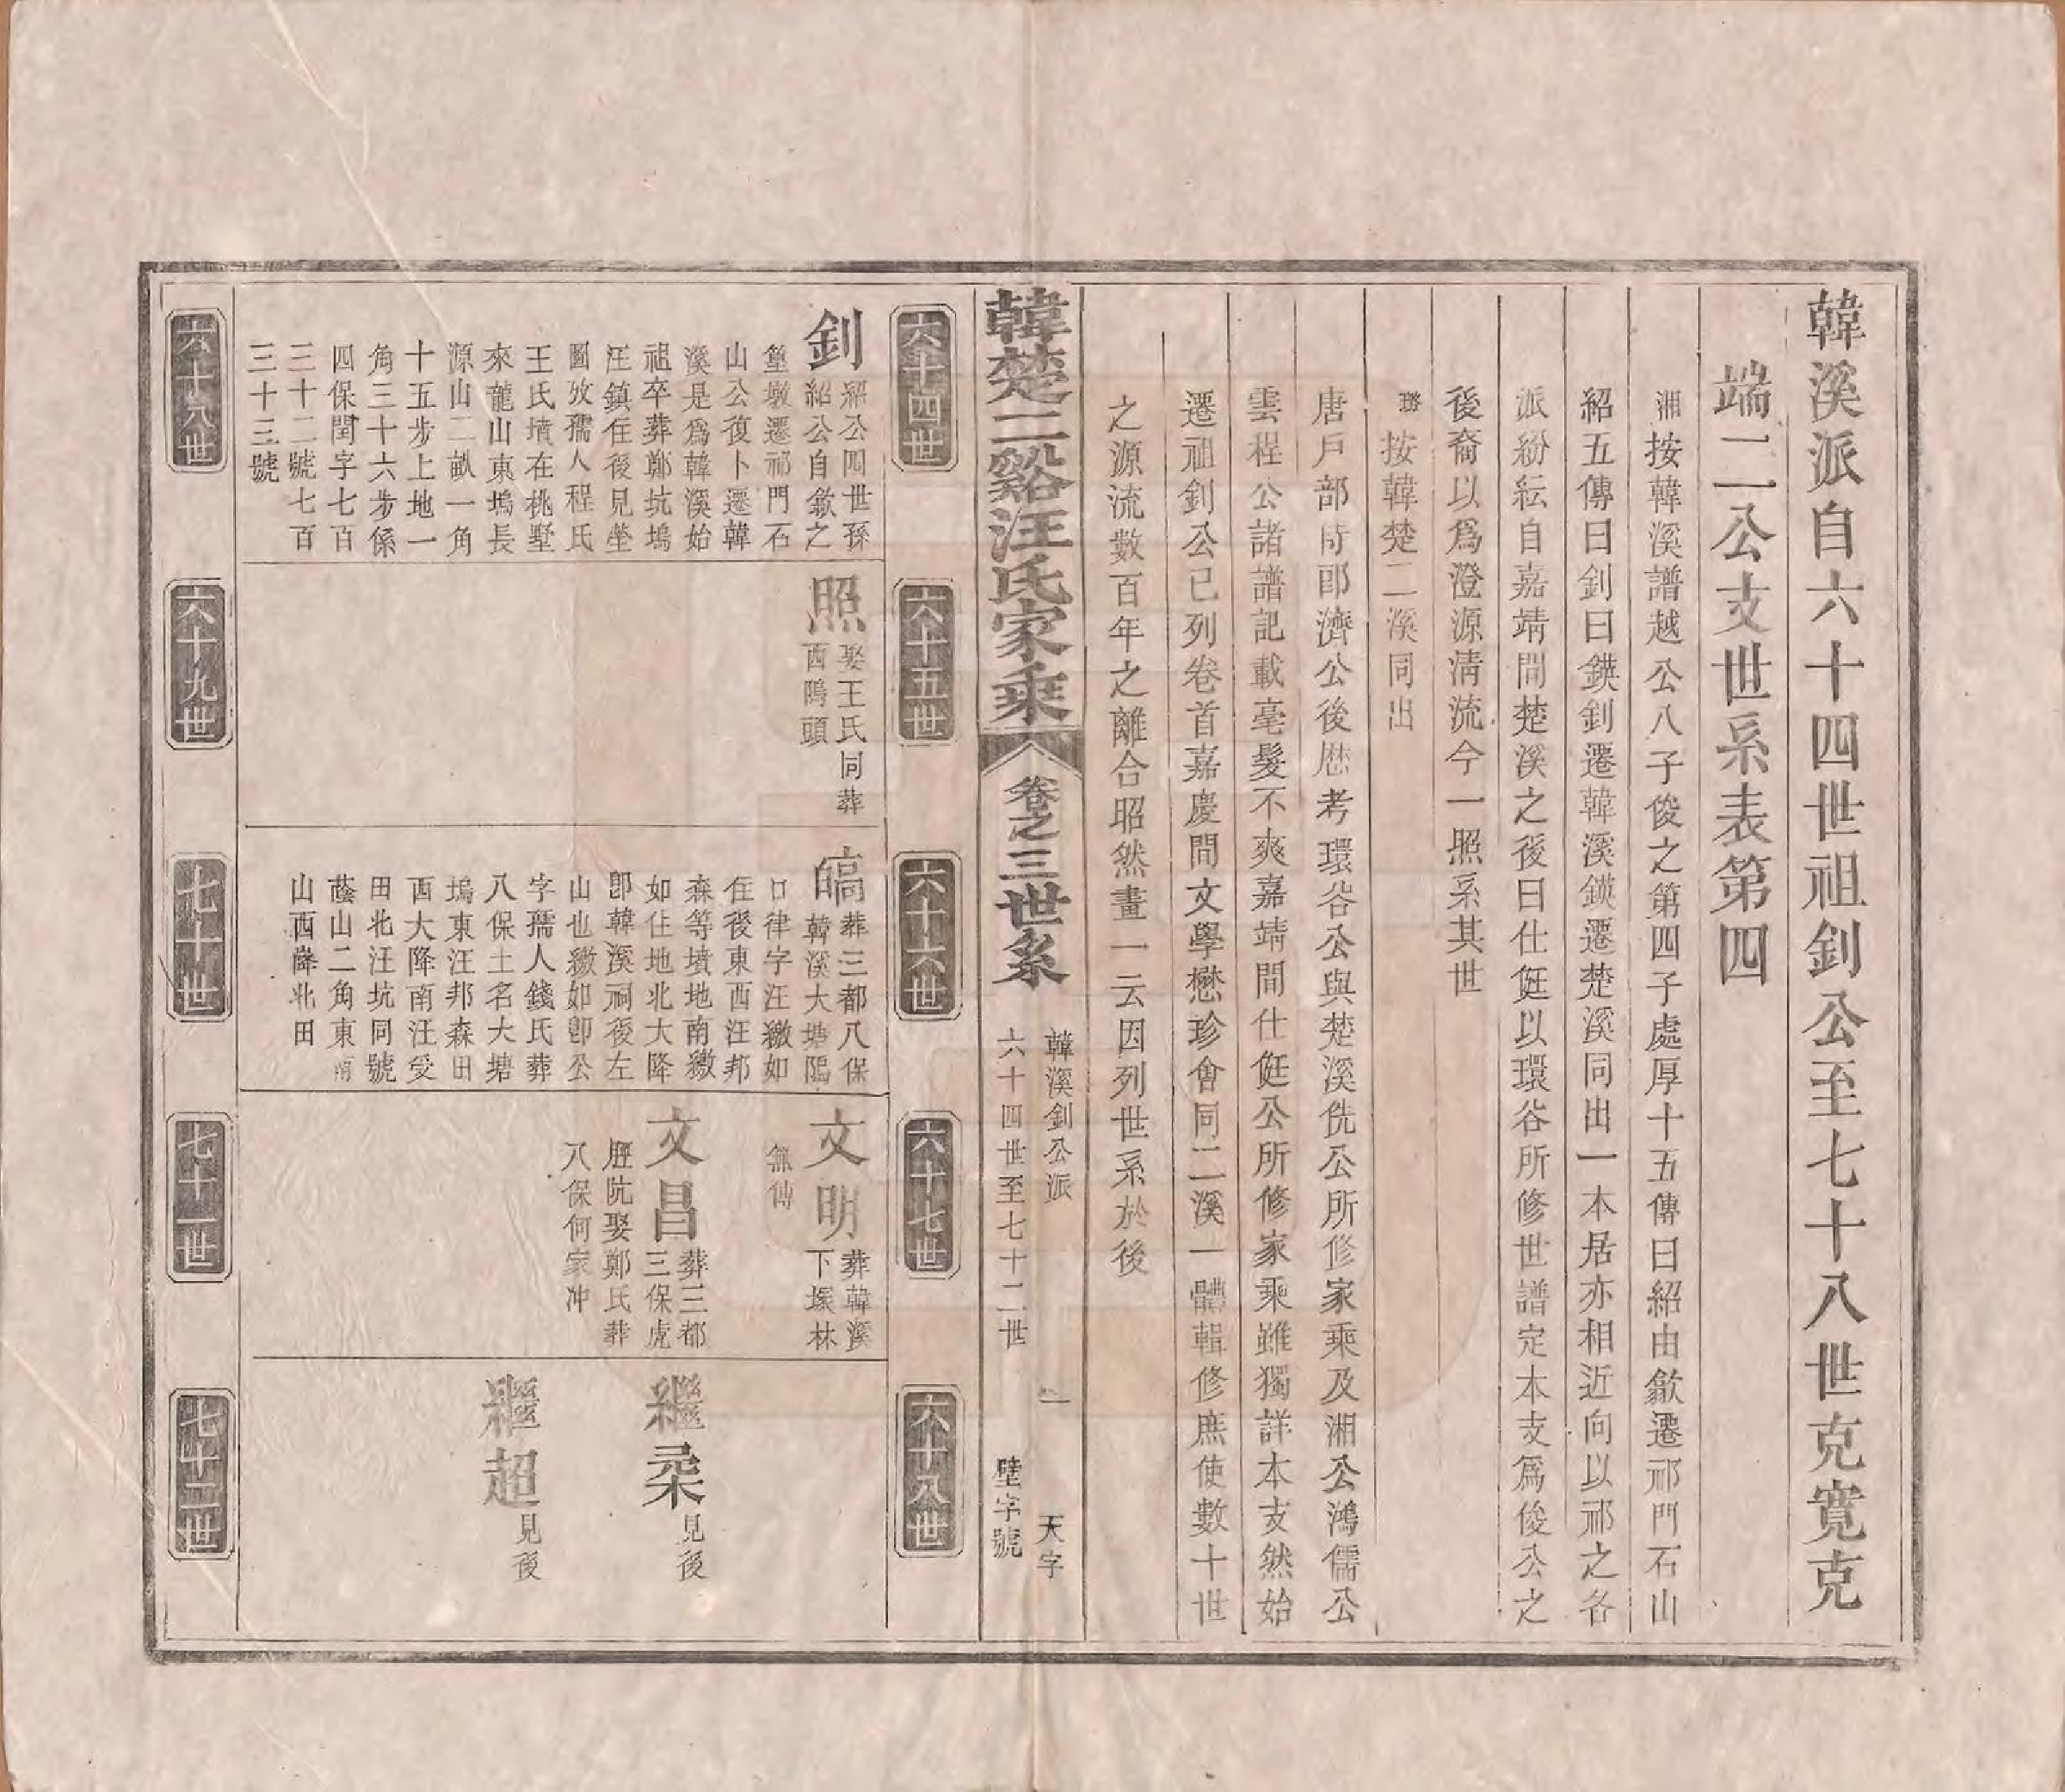 韓溪派自六十四世祖釗公至七十八世克寛克
端二公支世系表第四
湘按韓溪譜越公八子俊之第四子處厚十五傳曰紹由歙遷祁門石山
紹五傳曰釗曰鐄釗遷韓溪鐄遷楚溪同出一本居亦相近向以祁之各
派紛紜自嘉靖間楚溪之後曰仕侹以環谷所修世譜定本支爲俊公之
後裔以爲澄源淸流今一照系其世
按韓楚二溪同出
唐戶部侍郎濟公後歷考環谷公與楚溪侁公所修家乘及湘公鴻儒公
雲程公諸譜記載毫髮不爽嘉靖間仕侹公所修家乘雖獨詳本支然始
遷祖釗公已列卷首嘉慶間文學懋珍會同二溪一體輯修庶使數十世
之源流數百年之離合昭然畫一云因列世系於後
韓楚二谿汪氏家乘
卷之三世系
韓溪釗公派
六十四世至七十二世
一
天字
壁字號
六十四世
六十五世
六十六世
六十七世
六十八世
釗
紹公四世孫
紹公自歙之
篁墩遷祁門石
山公復卜遷韓
溪是爲韓溪始
祖卒葬鄭坑塢
汪鎮住後見塋
圖攷孺人程氏
王氏墳在桃墅
來龍山東塢長
源山二畝一角
十五步上地一
角三十六步係
四保閏字七百
三十二號七百
三十三號
照
娶王氏同葬
西隖頭
皜
葬三都八保
韓溪大塘隖
口律字汪繳如
住後東西汪邦
森等墳地南繳
如住地北大降
卽韓溪祠後左
山也繳如卽公
字孺人錢氏葬
八保土名大塘
塢東汪邦森田
西大降南汪受
田北汪坑同號
蔭山二角東南
山西降北田
文明
葬韓溪
下塚林
無傳
文昌
葬三都
三保虎
脛阬娶鄭氏葬
八保何家冲
繼柔
見後
繼超
見後
六十八世
六十九世
七十世
七十一世
七十二世